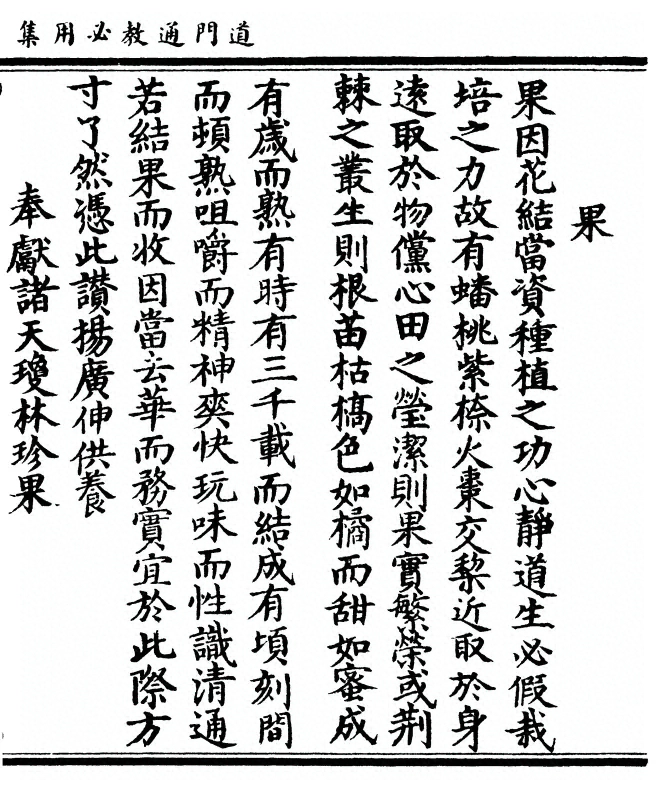 道門通教必用集
果
果因花結當資種植之功心靜道生必假栽
培之力故有蟠桃紫柰火棗交梨近取於身
遠取於物儻心田之瑩潔則果實繁榮或荆
棘之叢生則根苗枯槁色如橘而甜如蜜成
有歲而熟有時有三千載而結成有頃刻間
而頓熟咀嚼而精神爽快玩味而性識清通
若結果而收因當去華而務實宜於此際方
寸了然憑此讃揚廣伸供養
奉獻諸天瓊林珍果